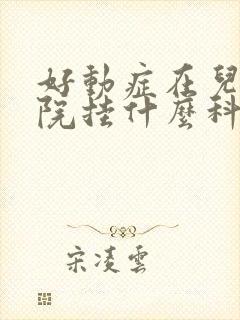 好動症在兒
院挂什麼科
宋凌雲